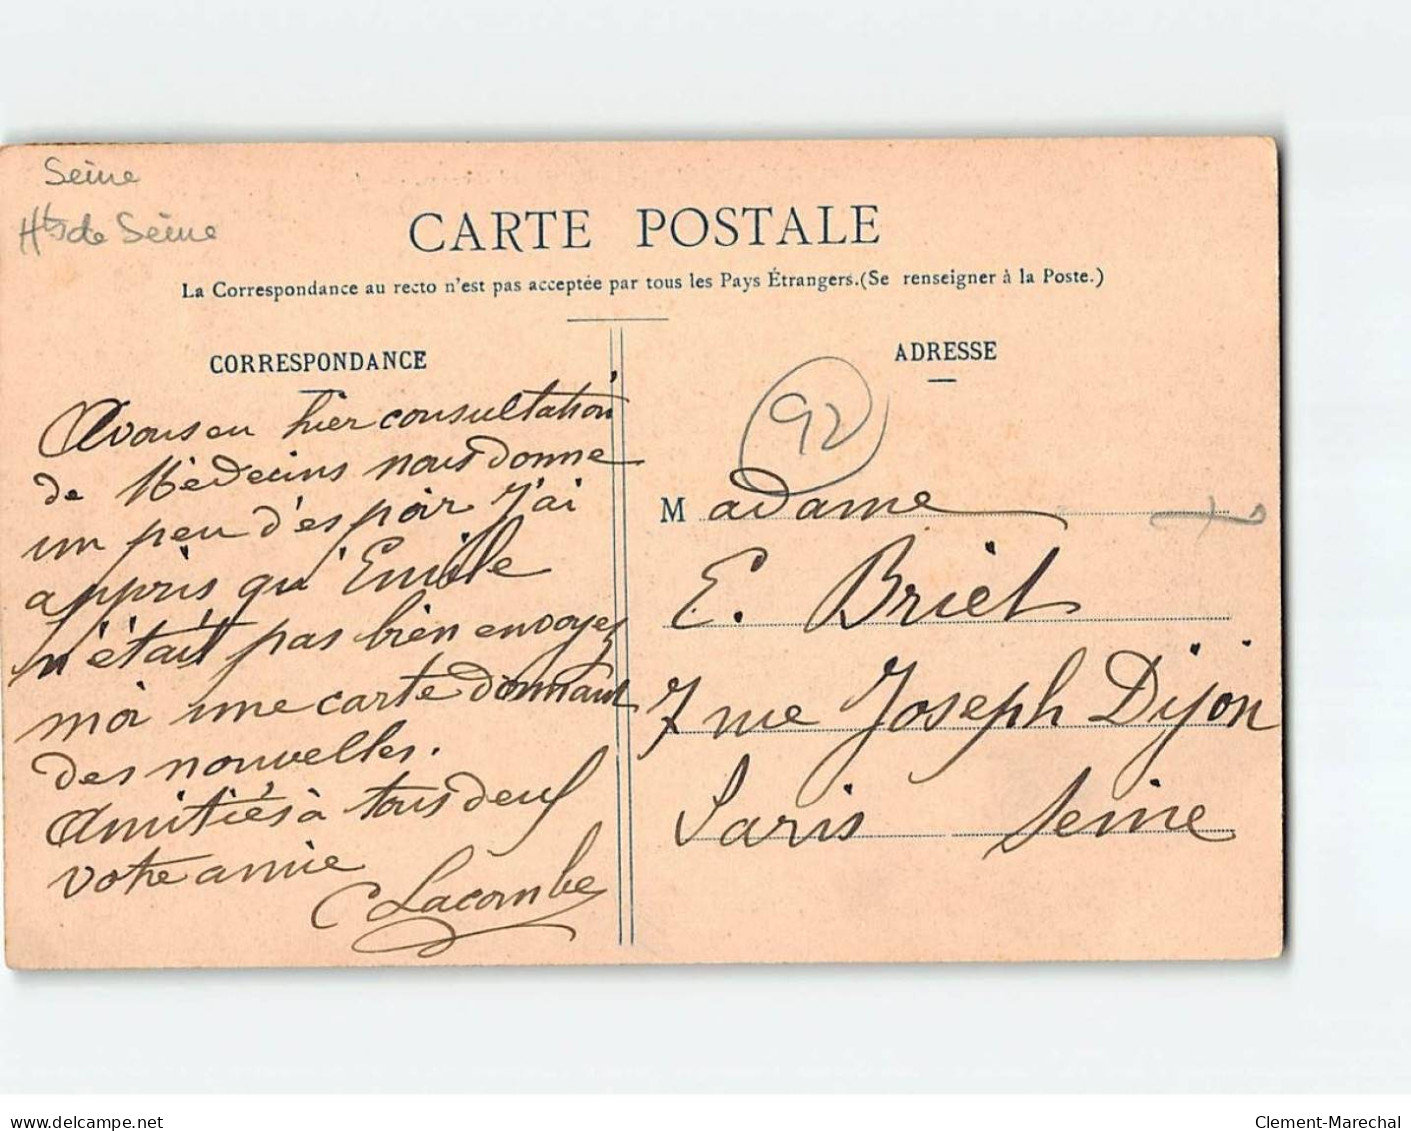 Seine
Hts de Seine
CARTE POSTALE
La Correspondance au recto n'est pas acceptée par tous les Pays Étrangers. (Se renseigner à la Poste.)
CORRESPONDANCE
Avons eu hier consultation
de Médecins nous donne
un peu d'espoir J'ai
appris qu'Emile
n'était pas bien envoyez
moi une carte donnant
des nouvelles.
Amitiés à tous deux
votre amie
C Lacombe
ADRESSE
92
Madame
E. Briet
7 rue Joseph Dijon
Paris Seine
delcampe.net
Clement-Marechal